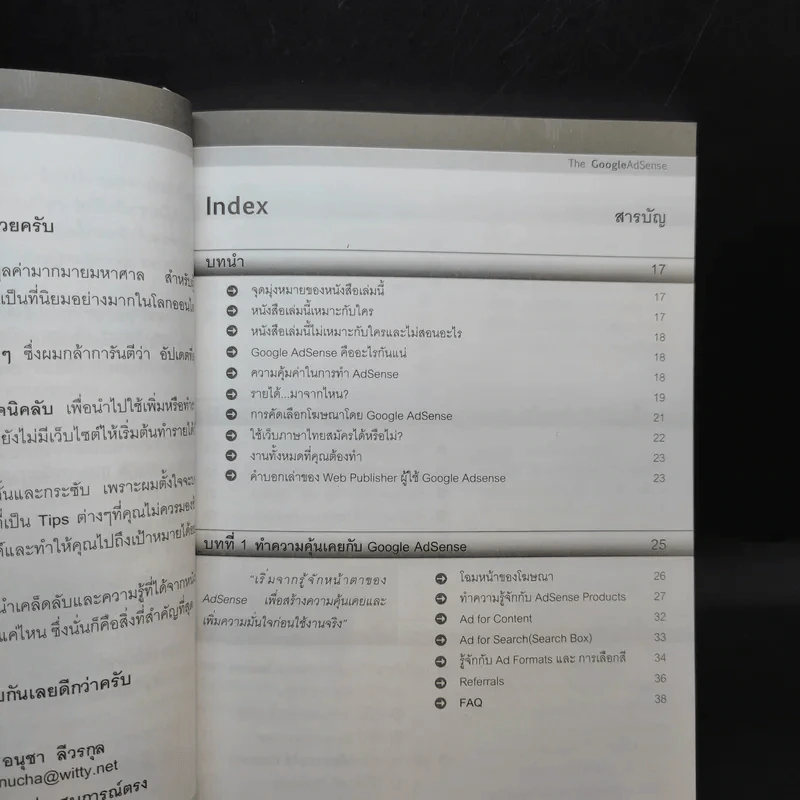 วยครับ
ลค่ามากมายมหาศาล สำหรับ
เป็นที่นิยมอย่างมากในโลกออนไล
ๆ ซึ่งผมกล้าการันตีว่า อัปเดตที่
จนิคลับ เพื่อนำไปใช้เพิ่มหรือทำร
ยังไม่มีเว็บไซต์ให้เริ่มต้นทำรายได้
ั้นและกระชับ เพราะผมตั้งใจจะบ
ี่เป็น Tips ต่างๆที่คุณไม่ควรมองข้
ด์และทำให้คุณไปถึงเป้าหมายได้อย
นำเคล็ดลับและความรู้ที่ได้จากหนัง
แค่ไหน ซึ่งนั่นก็คือสิ่งที่สำคัญที่สุด
กันเลยดีกว่าครับ
อนุชา ลีวรกุล
nucha@witty.net
The GoogleAdSense
Index
สารบัญ
บทนำ 17
จุดมุ่งหมายของหนังสือเล่มนี้ 17
หนังสือเล่มนี้เหมาะกับใคร 17
หนังสือเล่มนี้ไม่เหมาะกับใครและไม่สอนอะไร 18
Google AdSense คืออะไรกันแน่ 18
ความคุ้มค่าในการทำ AdSense 18
รายได้...มาจากไหน? 19
การคัดเลือกโฆษณาโดย Google AdSense 21
ใช้เว็บภาษาไทยสมัครได้หรือไม่? 22
งานทั้งหมดที่คุณต้องทำ 23
คำบอกเล่าของ Web Publisher ผู้ใช้ Google Adsense 23
บทที่ 1 ทำความคุ้นเคยกับ Google AdSense 25
"เริ่มจากรู้จักหน้าตาของ
AdSense เพื่อสร้างความคุ้นเคยและ
เพิ่มความมั่นใจก่อนใช้งานจริง"
โฉมหน้าของโฆษณา 26
ทำความรู้จักกับ AdSense Products 27
Ad for Content 32
Ad for Search(Search Box) 33
รู้จักกับ Ad Formats และ การเลือกสี 34
Referrals 36
FAQ 38